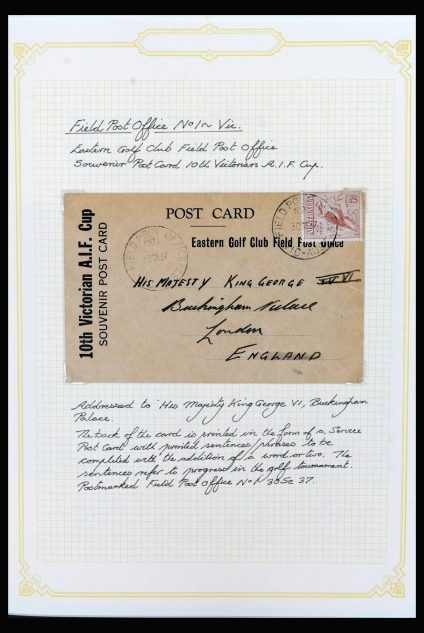 Field Post Office No 1 ~ Vic.
Eastern Golf Club Field Post Office
Souvenir Post Card 10th Victorian A.I.F. Cup.
10th Victorian A.I.F. Cup
SOUVENIR POST CARD
POST CARD
Eastern Golf Club Field Post Office
FIELD POST
30 SE 37
HIS MAJESTY KING GEORGE VI
Buckingham Palace
London
ENGLAND
Addressed to His Majesty King George VI, Buckingham
Palace.
The back of the card is printed in the form of a Service
Post Card with printed sentences/phrases to be
completed with the addition of a word or two. The
sentences refer to progress in the golf tournament.
Postmarked Field Post Office No 1 30 Se 37.